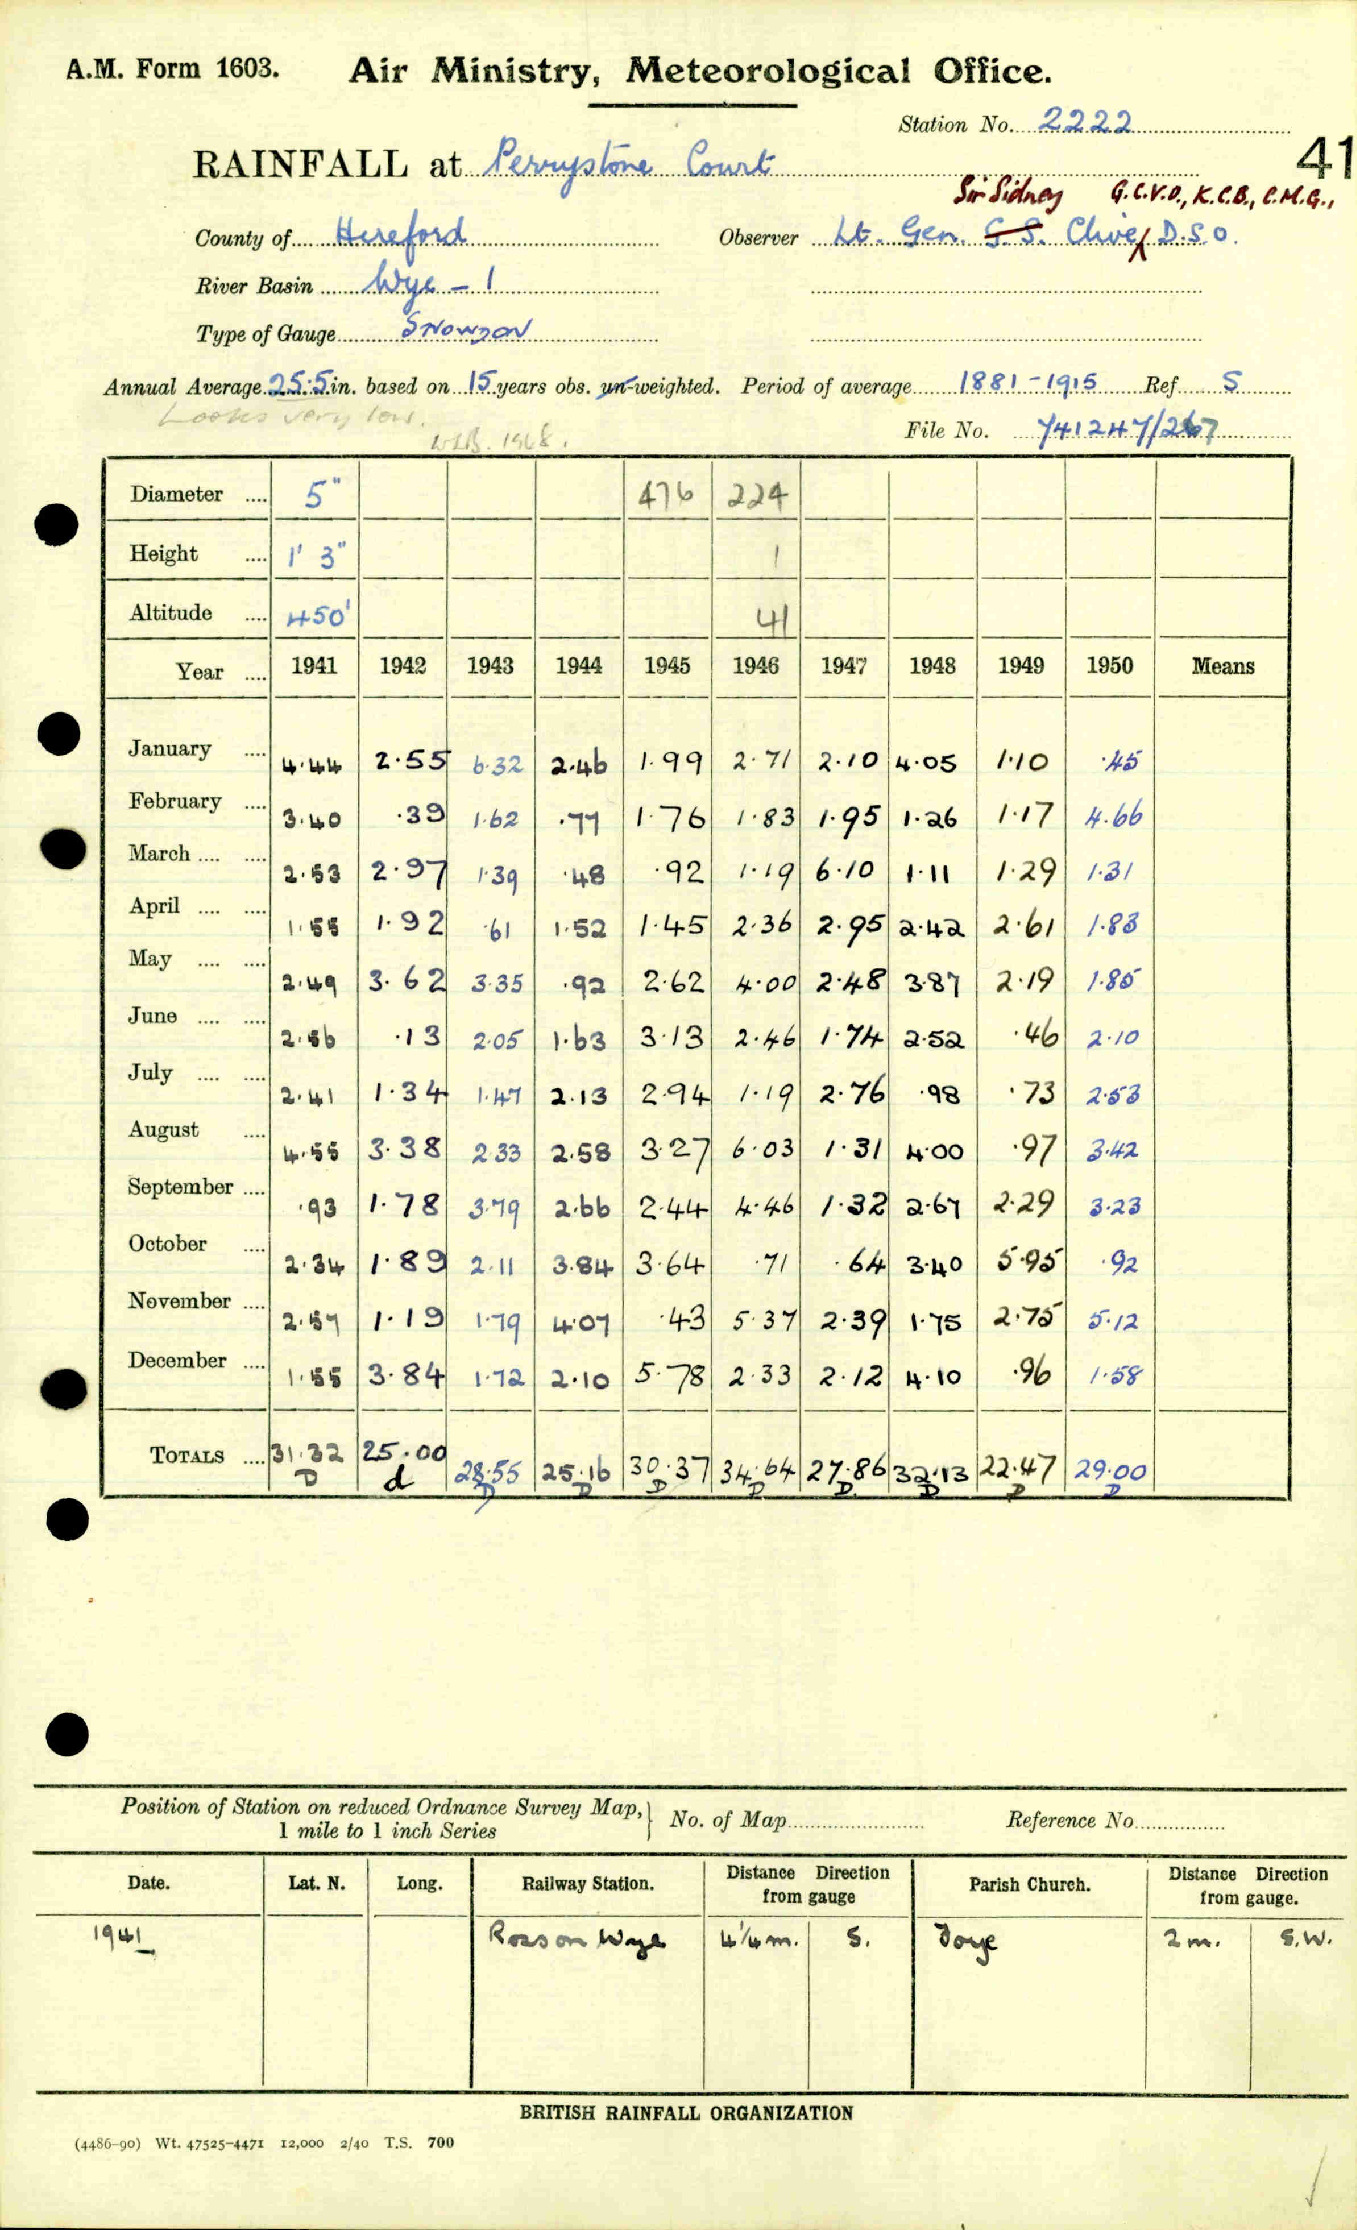 A.M. Form 1603. Air Ministry, Meteorological Office.
Station No. 2222
41
RAINFALL at Perrystone Court
Sir Sidney G.C.V.O., K.C.B., C.M.G.,
County of Hereford Observer Lt. Gen. G.S. Clive D.S.O.
River Basin Wye - 1
Type of Gauge SNOWDON
Annual Average 25.5 in. based on 15 years obs. un-weighted. Period of average 1881-1915 Ref. S
Looks very low.
1968.
File No. 741247/267
Diameter .... 5" 476 224
Height .... 1' 3" 1
Altitude .... 450' 41
Year .... 1941 1942 1943 1944 1945 1946 1947 1948 1949 1950 Means
January .... 4.44 2.55 6.32 2.46 1.99 2.71 2.10 4.05 1.10 .45
February .... 3.40 .39 1.62 .77 1.76 1.83 1.95 1.26 1.17 4.66
March .... .... 2.53 2.97 1.39 .48 .92 1.19 6.10 1.11 1.29 1.31
April .... .... 1.55 1.92 .61 1.52 1.45 2.36 2.95 2.42 2.61 1.83
May .... .... 2.49 3.62 3.35 .92 2.62 4.00 2.48 3.87 2.19 1.85
June .... .... 2.56 .13 2.05 1.63 3.13 2.46 1.74 2.52 .46 2.10
July .... .... 2.41 1.34 1.47 2.13 2.94 1.19 2.76 .98 .73 2.53
August .... 4.55 3.38 2.33 2.58 3.27 6.03 1.31 4.00 .97 3.42
September .... .93 1.78 3.79 2.66 2.44 4.46 1.32 2.67 2.29 3.23
October .... 2.34 1.89 2.11 3.84 3.64 .71 .64 3.40 5.95 .92
November .... 2.57 1.19 1.79 4.07 .43 5.37 2.39 1.75 2.75 5.12
December .... 1.55 3.84 1.72 2.10 5.78 2.33 2.12 4.10 .96 1.58
TOTALS .... 31.32 25.00 28.55 25.16 30.37 34.64 27.86 32.13 22.47 29.00
D d D D D D D D D D
Position of Station on reduced Ordnance Survey Map, No. of Map Reference No.
1 mile to 1 inch Series
Date. Lat. N. Long. Railway Station. Distance Direction from gauge Parish Church. Distance Direction from gauge.
1941 Ross on Wye 4¼m. S. Foye 2 m. S.W.
BRITISH RAINFALL ORGANIZATION
(4486-90) Wt. 47525-4471 12,000 2/40 T.S. 700